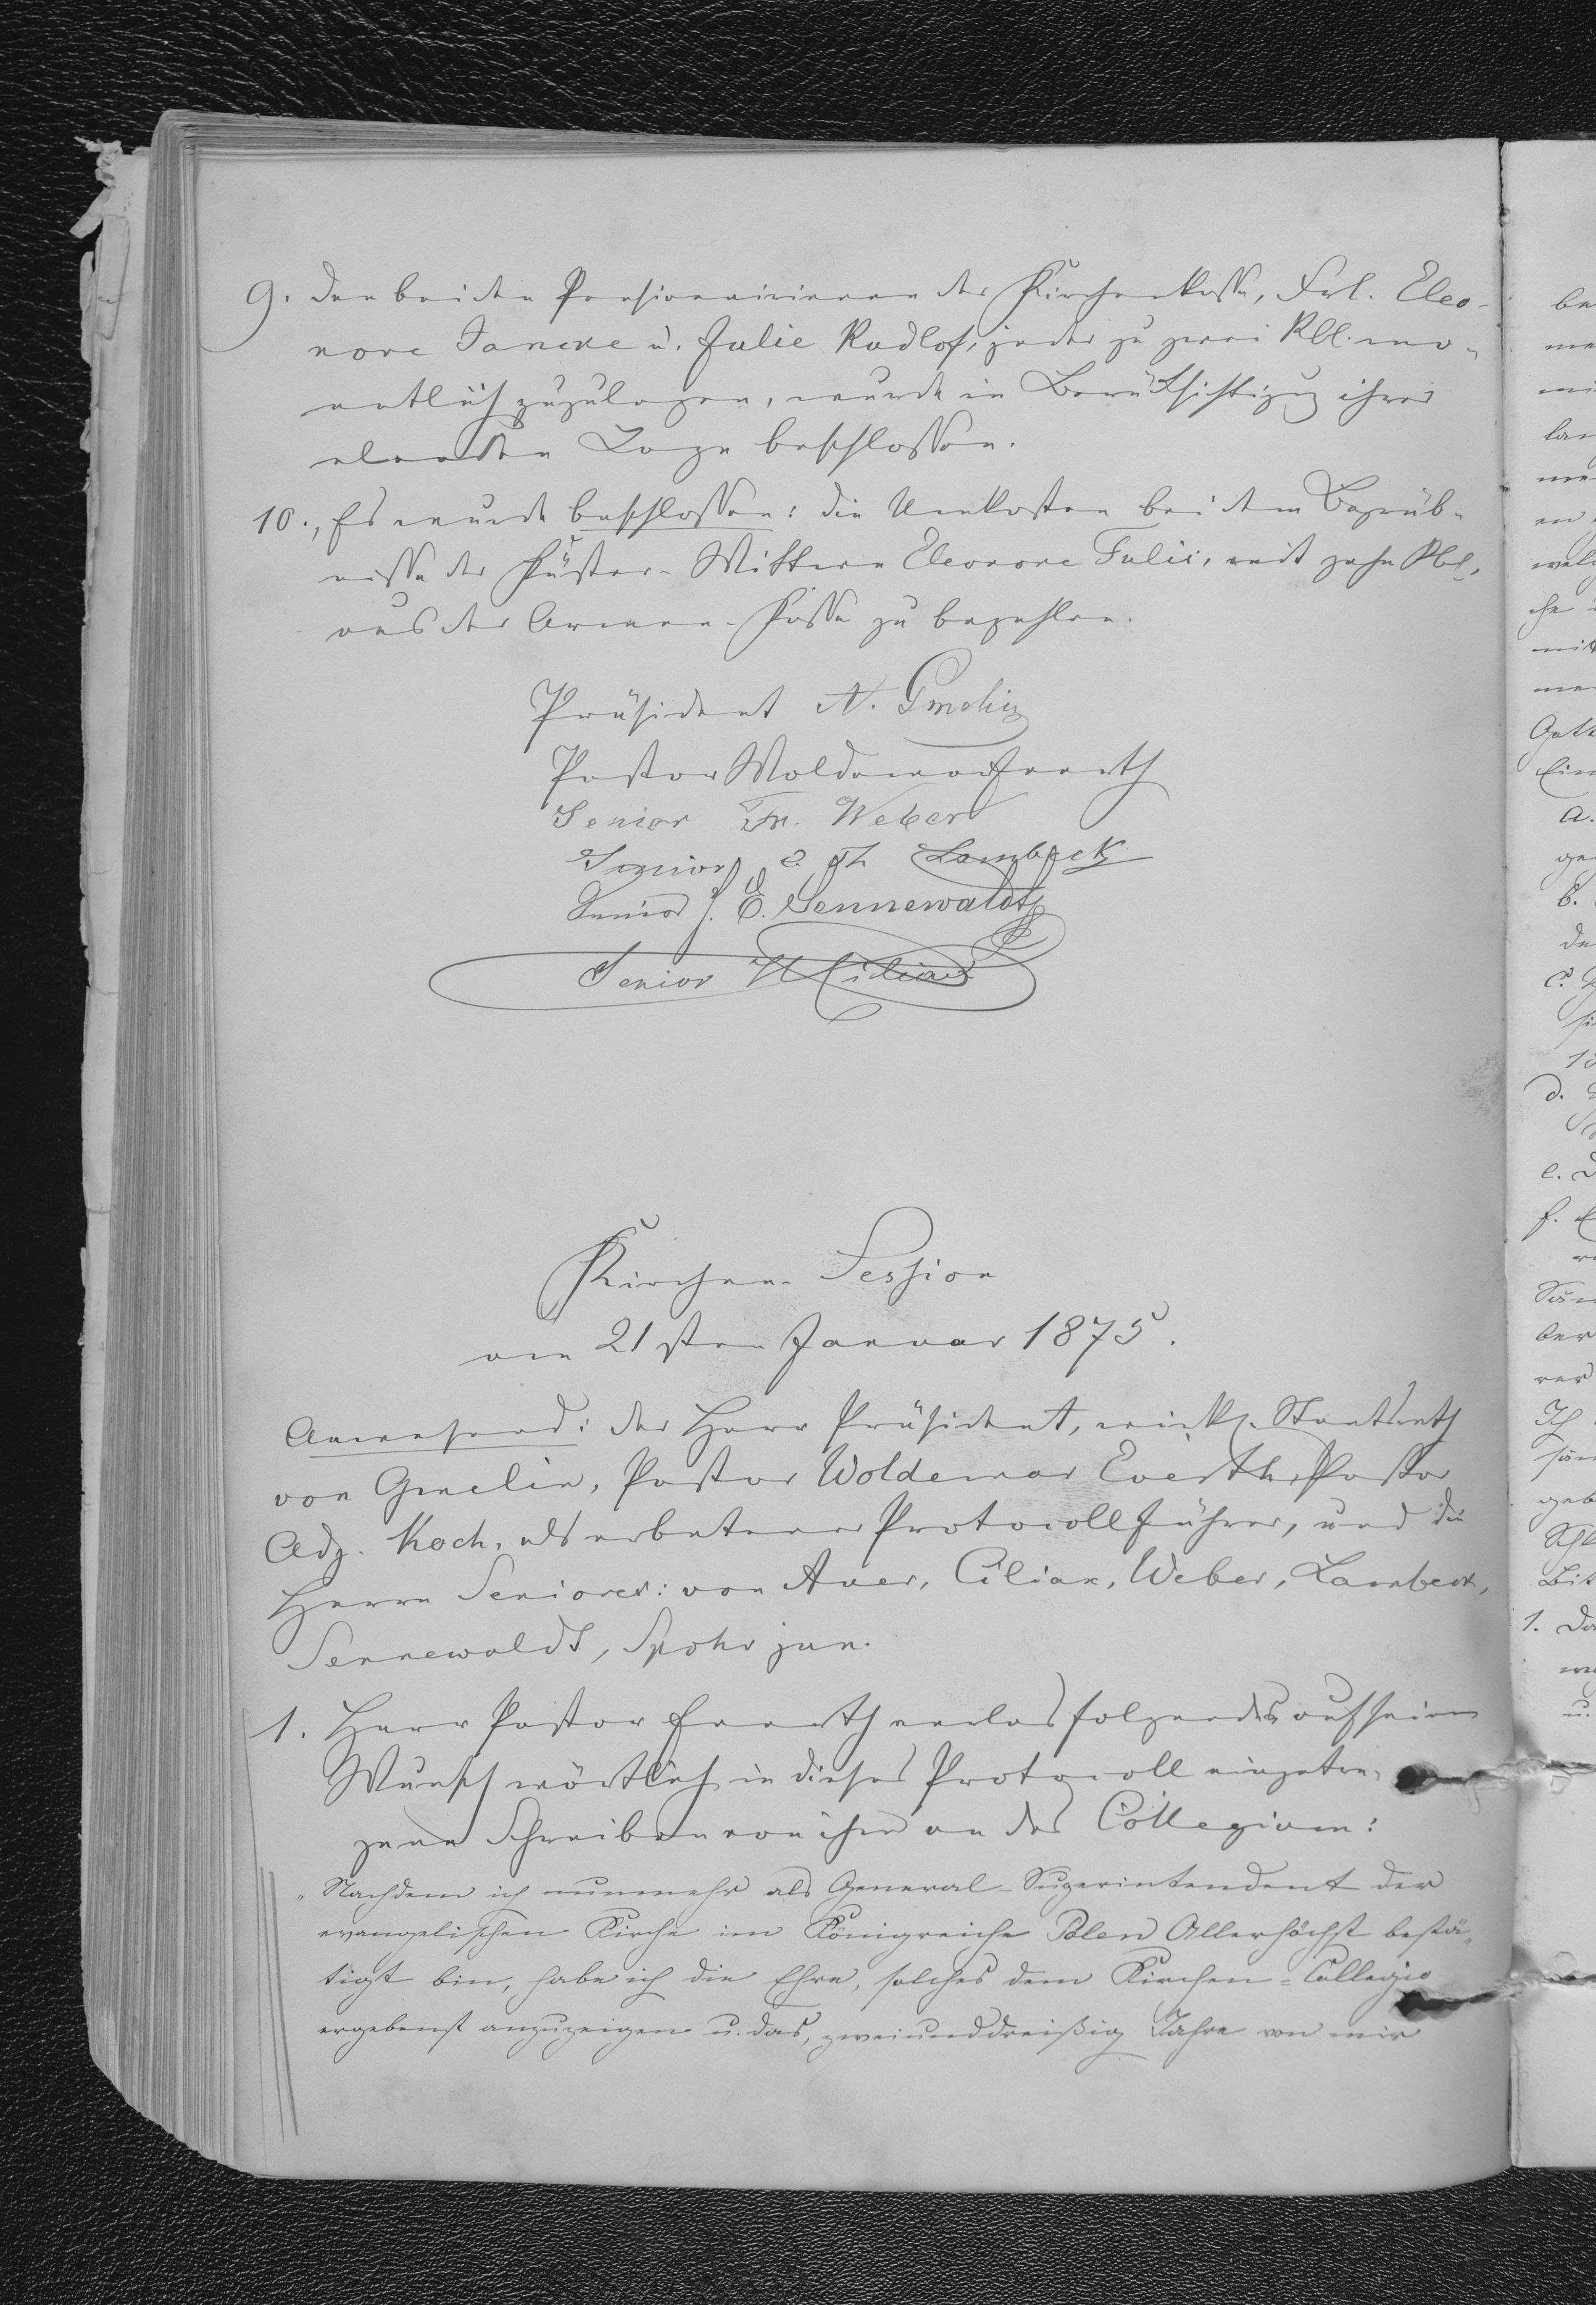 9. Den beiden Pensionairinnen der Kirchenkasse, Frl. Eleo-
nore Jancke u. Julie Radlof, jeder zu zwei Rbl. mo-
natlich zuzulegen, wurde in Berücksichtigung ihrer
elenden Lage beschlossen.
10., Es wurde beschlossen: die Unkosten bei dem Begräb-
nisse der Küster-Wittwe Eleonore Fulir, mit zehn Rbl.
aus der Armen-Kasse zu bezahlen.
Präsident N. Gmelin
Pastor Woldemar Everth
Senior Fr. Weber
Senior C. Th Lambeck
Senior J. E. Sennewaldt
Senior Cilian
Kirchen-Session
am 21sten Januar 1875.
Anwesend: der Herr Präsident, wirkl. Staatsrath
von Gmelin, Pastor Woldemar Everth, Pastor
Adj. Koch, als erbetener Protocollführer, und die
Herrn Seniores: von Auer, Cilian, Weber, Lambeck,
Sennewaldt, Spohr jun.
1. Herr Pastor Everth verlas folgendes auf seinen
Wunsch wörtlich in dieses Protocoll eingetra-
gene Schreiben von ihm an das Collegium:
„Nachdem ich nunmehr als General-Superintendent der
evangelischen Kirche im Königreiche Polen Allerhöchst bestä-
tigt bin, habe ich die Ehre, solches dem Kirchen-Collegio
ergebenst anzuzeigen u. das, zweiunddreißig Jahre von mir